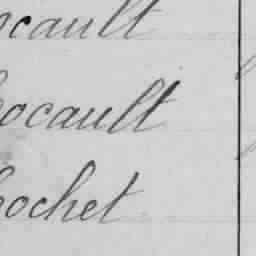 ocault
ocault
ochet